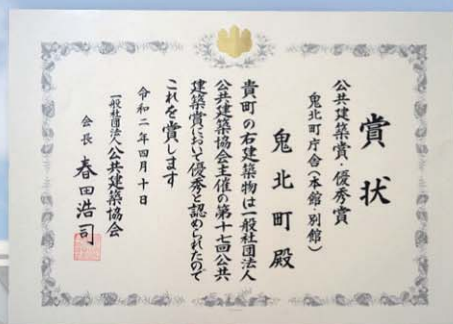 賞状
公共建築賞・優秀賞
鬼北町庁舎(本館、別館)
鬼北町殿
貴町の右建築物は一般社団法人
公共建築協会主催の第十七回公共
建築賞において優秀と認められたので
これを賞します
令和二年四月十日
一般社団法人公共建築協会
会長 春田浩司